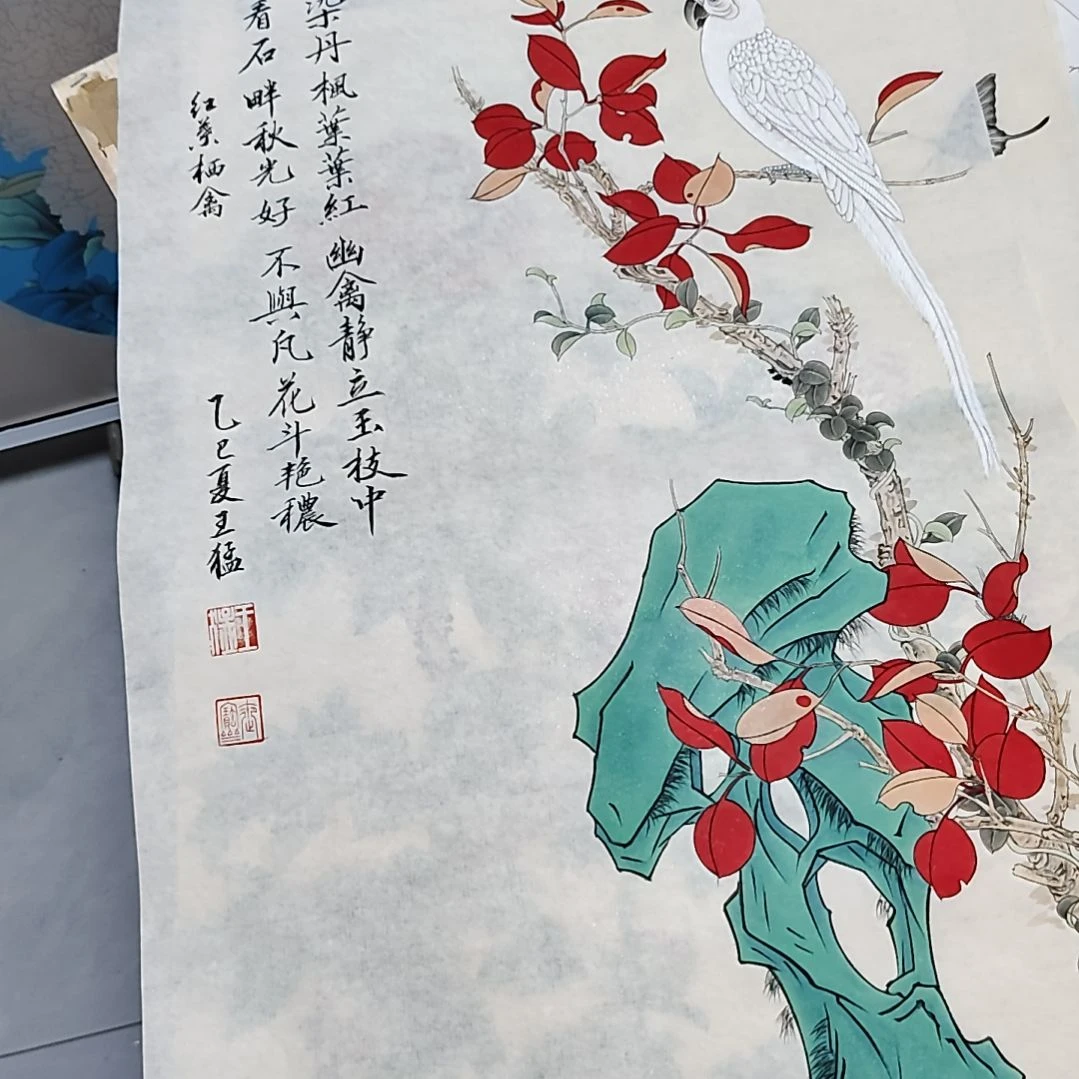 染丹楓葉葉紅幽禽静立玉枝中
看石畔秋光好不與凡花斗艳穠
红葉栖禽
乙巳夏王猛